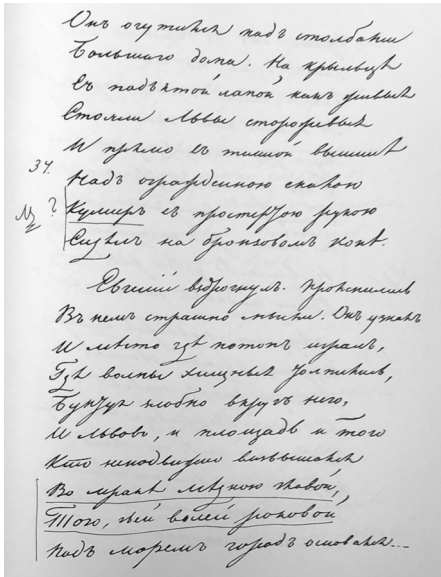 Онъ очутился подъ столбами
Большаго дома. На крыльцѣ
Съ подъятой лапой какъ живые
Стояли львы сторожевые
И прямо въ темной вышинѣ
34.
Надъ огражденною скалою
?
Кумиръ съ простертою рукою
Сидѣлъ на бронзовомъ конѣ.
Евгеній вздрогнулъ. Прояснились
Въ немъ страшно мысли. Онъ узналъ
И мѣсто гдѣ потопъ игралъ,
Гдѣ волны хищныя толпились,
Бунтуя злобно вкругъ него,
И львовъ, и площадь и того
Кто неподвижно возвышался
Во мракѣ мѣдною главой,
Того, чьей волей роковой
Надъ моремъ городъ основался...